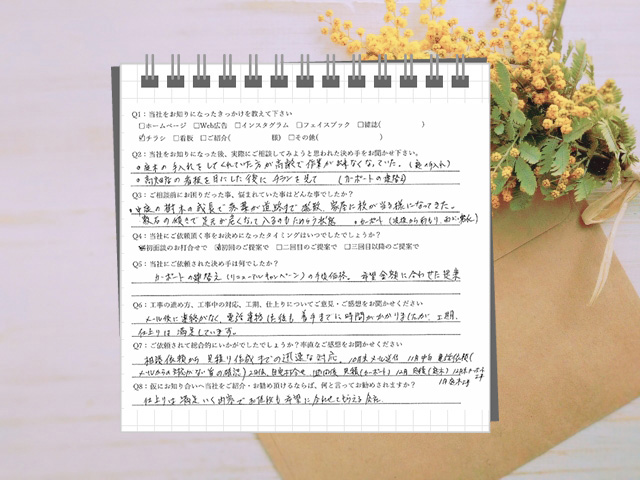 Q1：当社をお知りになったきっかけを教えて下さい
□ホームページ □Web広告 □インスタグラム □フェイスブック □雑誌( )
☑チラシ □看板 □ご紹介( 様) □その他( )
Q2：当社をお知りになった後、実際にご相談してみようと思われた決め手をお聞かせ下さい。
庭木の手入れをしてくれていた方が高齢で作業が出来なくなっていた。(庭の手入れ)
の看板を目にした後にチラシを見て (カーポートの建替え)
Q3：ご相談前にお困りだった事、悩まれていた事はどんな事でしたか？
の樹木の成長で落葉が道路まで 隣家に枝が当る様になってきた。
敷石の傾きで足元が危なくなって入るのもためらう状態 カーポート
Q4：当社にご依頼頂く事をお決めになったタイミングはいつでしたでしょうか？
初面談のお打合せで ☑初回のご提案で □二回目のご提案で □三回目以降のご提案で
Q5：当社にご依頼された決め手は何でしたか？
カーポートの建替え(リニューアルキャンペーン)の 価格、希望金額に合わせた提案
Q6：工事の進め方、工事中の対応、工期、仕上りについてご意見・ご感想をお聞かせください
メール後に連絡がなく、電話連絡 着手までに時間がかかりましたが、工期、
仕上りは満足しています。
Q7：ご依頼されて総合的にいかがでしたでしょうか？率直なご感想をお聞かせください
相談依頼から見積り作成までの迅速な対応、10月末メール送信 11月中旬 電話依頼(
メールからの連絡がない旨の確認) 見積(カーポート) 12月
Q8：仮にお知り合いへ当社をご紹介・お勧め頂けるならば、何と言ってお勧めされますか？
仕上りは満足いく内容で 希望に合わせてもらえる会社